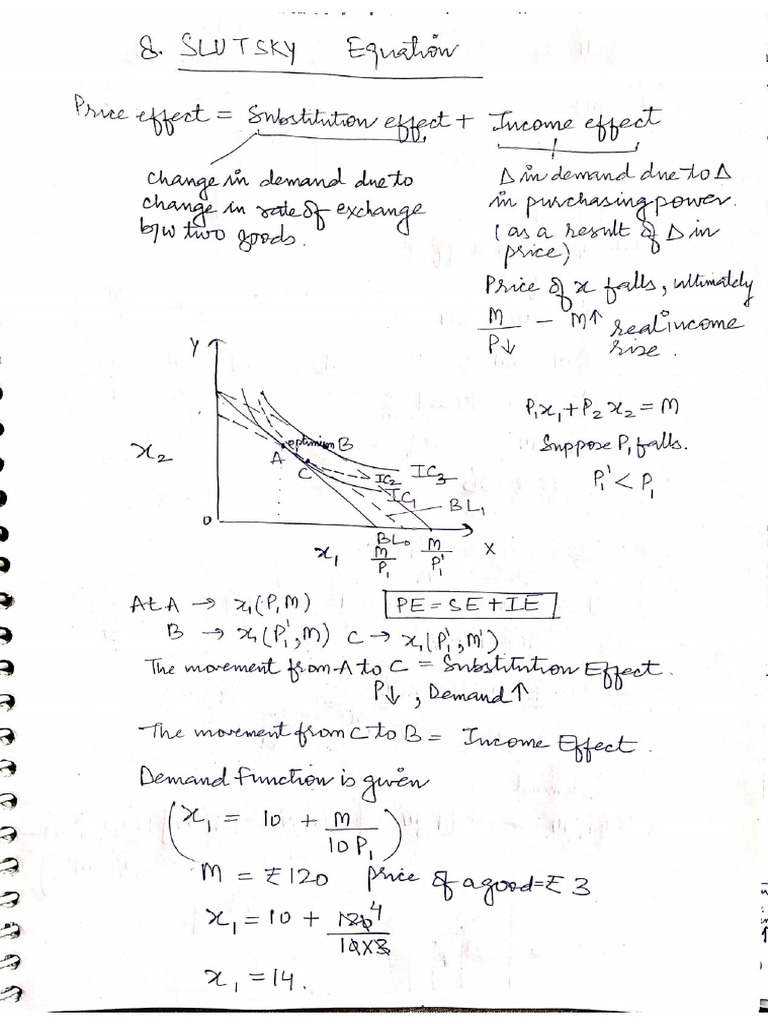 8. SLUTSKY Equation
Price effect = Substitution effect + Income effect
change in demand due to
change in rate of exchange
b/w two goods.
Δ in demand due to Δ
in purchasing power.
(as a result of Δ in
price)
Price of x falls, ultimately
M/P↓ - M↑ real income
rise.
Y
x₂
A
optimium B
C
IC₃
IC₂
IC₁
BL₁
BL₀
O
x₁
M/P₁
M/P₁'
X
P₁x₁ + P₂x₂ = M
Suppose P₁ falls.
P₁' < P₁
At A → x₁(P,M) PE = SE + IE
B → x₁(P₁',M) C → x₁(P₁',M')
The movement from A to C = Substitution Effect.
P↓, Demand↑
The movement from C to B = Income Effect.
Demand Function is given
(x₁ = 10 + M/10P₁)
M = ₹120 price of a good = ₹3
x₁ = 10 + 120 4/10×3
x₁ = 14.